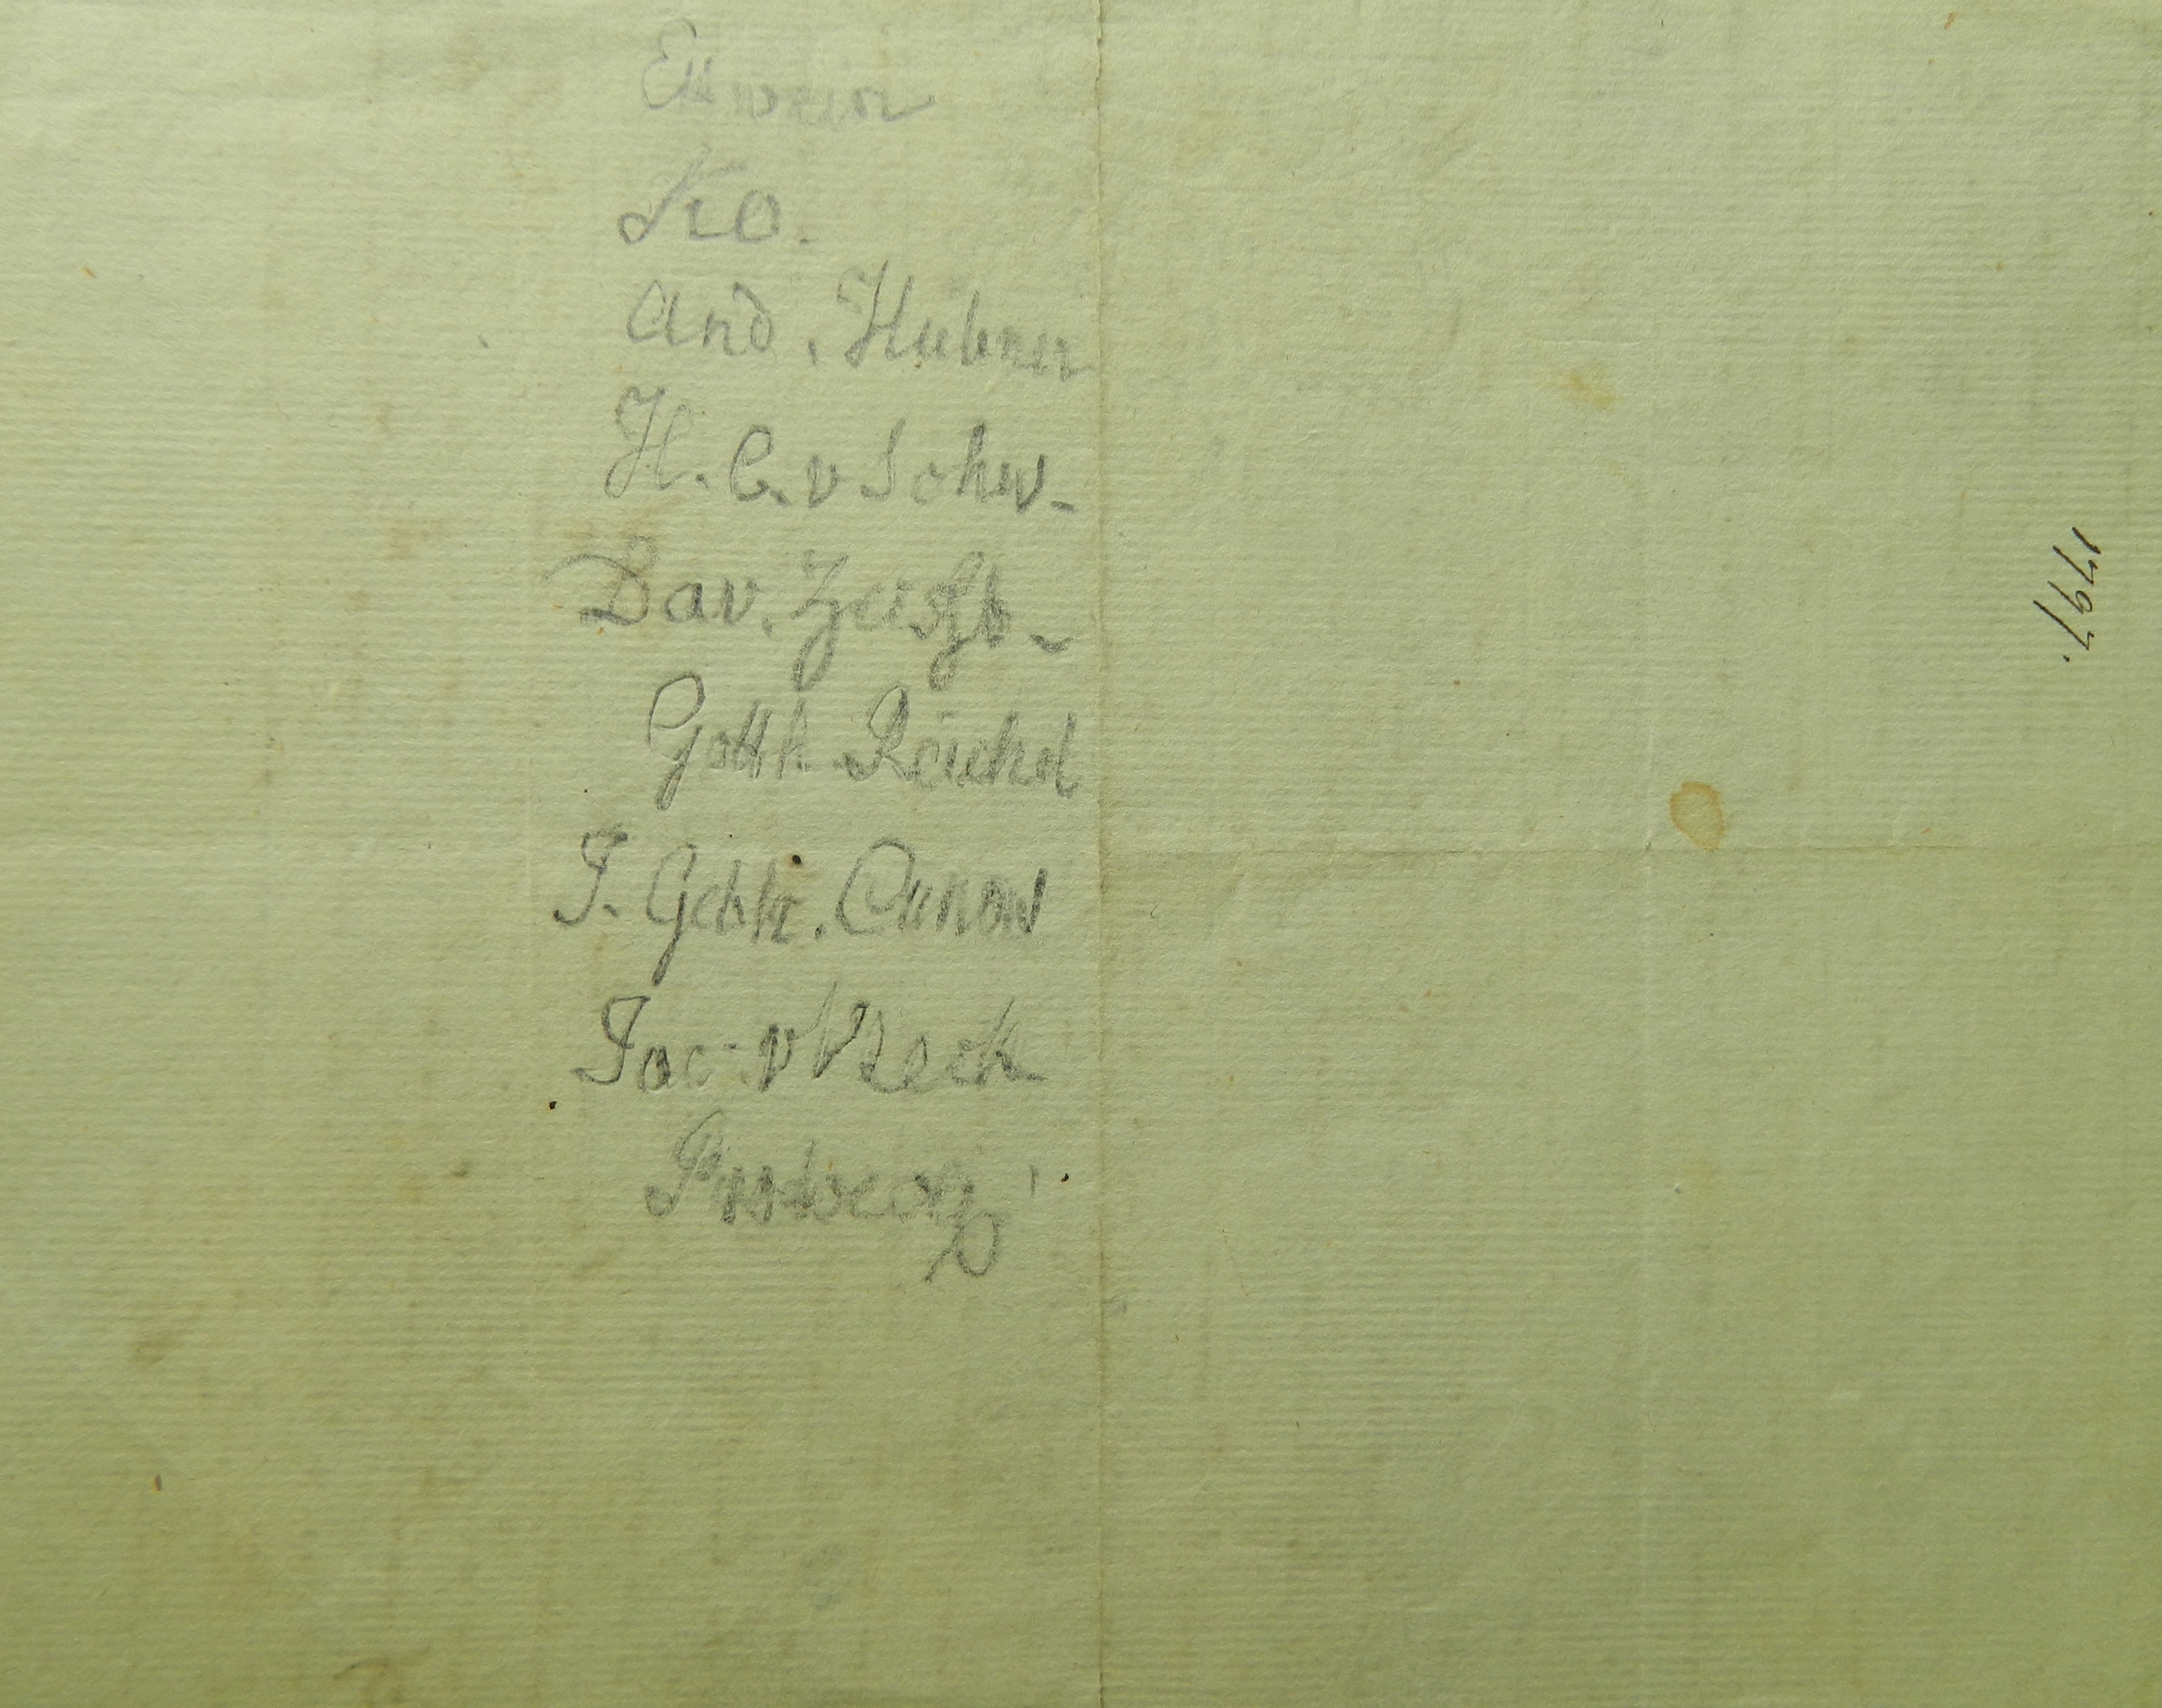 Ettwein
Ko.
And. Hübner
H. C. v Schw-
Dav. Zeisb-
Gotth Reichel
J. Gebh. Cunow
Jac. v Vleck
1797.